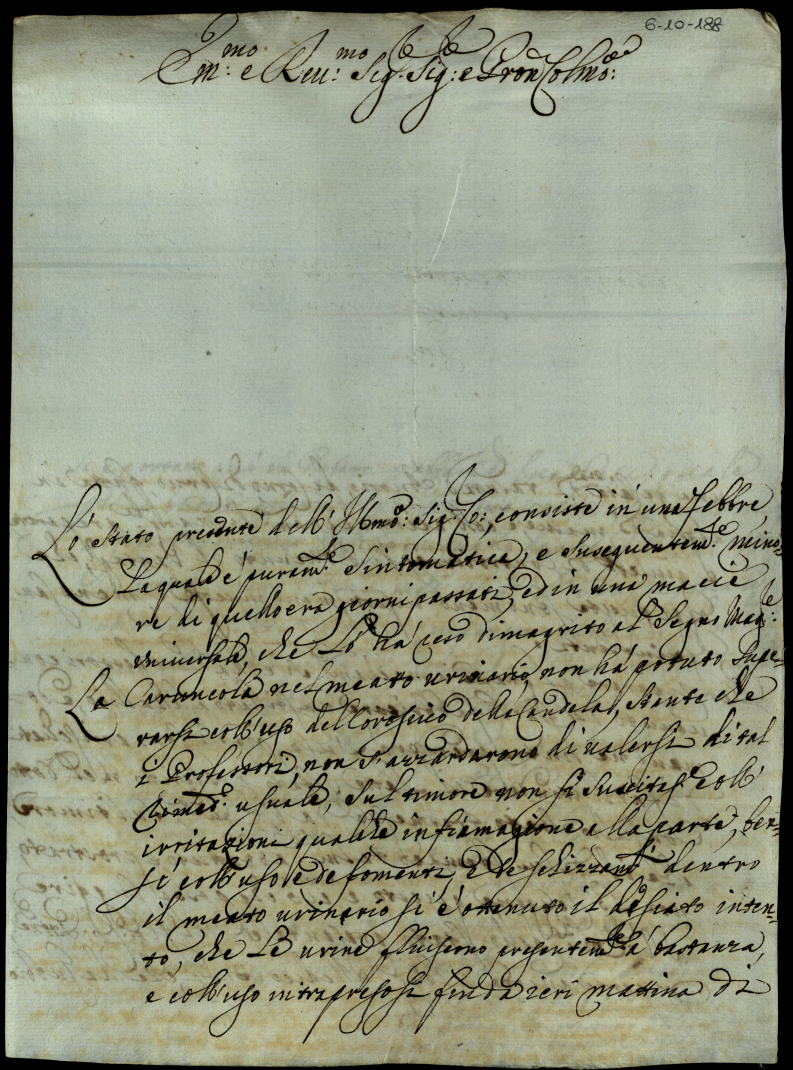 6-10-188
Em:mo e Reu:mo Sig:re Sig:re e Pron Colmo:
Lo stato presente dell' Illmo: Sig: Co:, consiste in una febbre
la quale é puram:te sintomatica, e susequentem:te mino-
re di quello era giorni passati, ed in una macie
universale, che Lo há reso dimagrito al Segno Mag:re
La Caruncola nel meato urinario, non há potuto supe-
rarsi coll'uso della Candela, stante che
i Professori, non s'azzardarono di valersi di tal
rimed:o usuale, sul timore non si suscitasse coll'
irritazioni qualche infiamagione alla parte, ben-
sí coll'uso de fomenti, e de schizzandi dentro
il meato urinario si é ottenuto il desiato inten-
to, che Le urine fluiscono presentem:te á bastanza,
e coll'uso intrapresosi fin da ieri mattina di